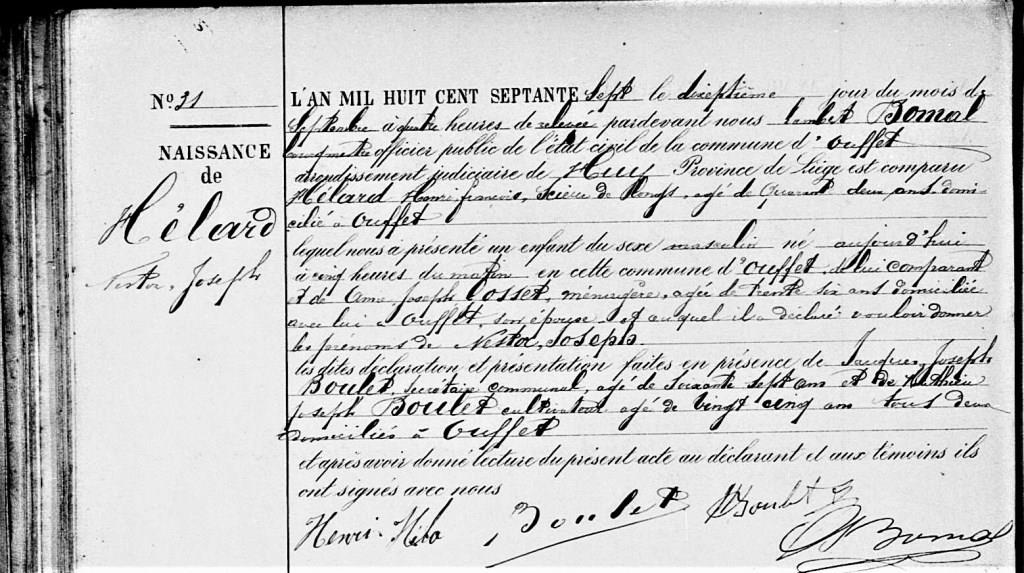 Nº 31
NAISSANCE
de
Hélard
Nestor, Joseph
L'AN MIL HUIT CENT SEPTANTE Sept le dixseptième jour du mois de
Septembre à quatre heures de relevée pardevant nous Lambert Bomal
bourgmestre officier public de l'état civil de la commune d'Ouffet
arrondissement judiciaire de Huy Province de Liége est comparu
Hélard Henri françois, Scieur de longs, agé de Quarante deux ans domi-
cilié à Ouffet
lequel nous à présenté un enfant du sexe masculin né aujourd'hui
à cinq heures du matin en cette commune d'Ouffet, de lui comparant
et de Anne Joseph Cosset, ménagère, agée de trente six ans domiciliée
avec lui à Ouffet, son épouse et auquel il a déclaré vouloir donner
les prénoms de Nestor, Joseph.
les dites déclaration et présentation faites en présence de Jacques, Joseph
Boulet, secrétaire communal, agé de Soixante sept ans et de
Joseph Boulet cultivateur agé de Vingt cinq ans tous deux
domiciliés à Ouffet
et après avoir donné lecture du présent acte au déclarant et aux témoins ils
ont signés avec nous
Henri Boulet Boulet J
Bomal